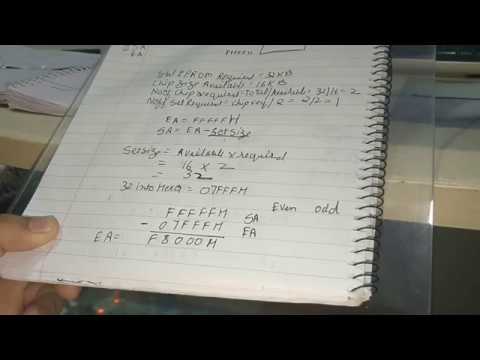 EA
FFFFFH
Total EPROM Required = 32KB
Chip Size Available = 16KB
No of Chip required = Total/Available = 32/16 = 2
No of Set Required = Chip req/2 = 2/2 = 1
EA = FFFFFH
SA = EA - Set size
Set size = Available x required
= 16 x 2
= 32
32 into Hexa = 07FFFH
Even odd
FFFFFH SA
- 07FFFH EA
EA = F8000H